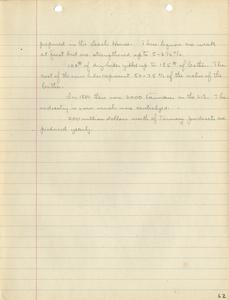 prepared in the Leach House. These liquors are weak
at first but are strengthened up to 5-6 %
100# of dry hides yields up to 185# of leather. The
cost of the raw hides represent 50-75% of the value of the
leather.
In 1880 there were 5000 Tanneries in the U.S. The
industry is now much more centralized.
200 million dollars worth of Tannery products are
produced yearly.
62